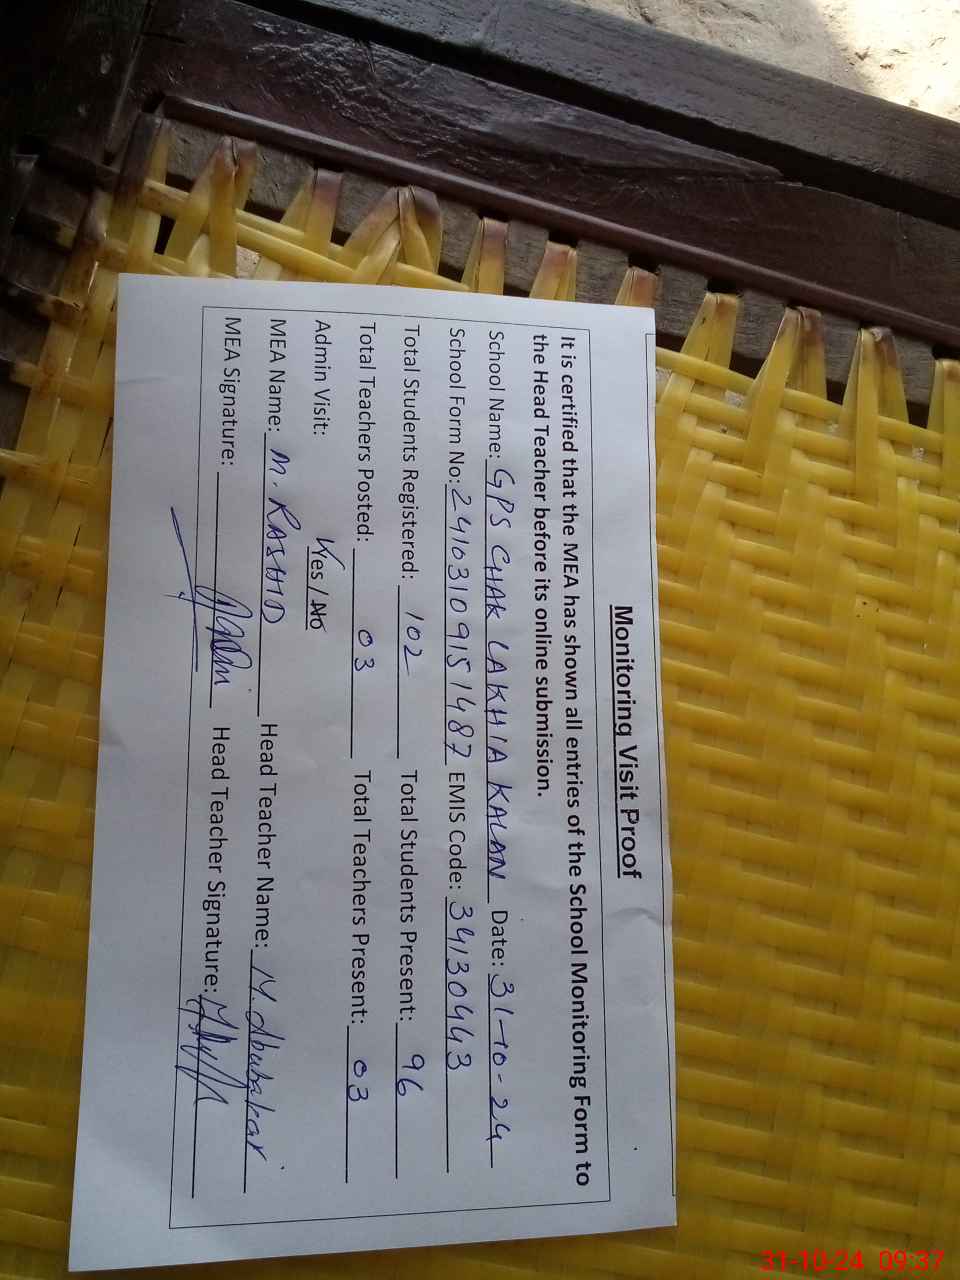 Monitoring Visit Proof
It is certified that the MEA has shown all entries of the School Monitoring Form to
the Head Teacher before its online submission.
School Name: GPS CHAK LAKHIA KALAN Date: 31-10-24
School Form No: 24103109151487 EMIS Code: 34130443
Total Students Registered: 102 Total Students Present: 96
Total Teachers Posted: 03 Total Teachers Present: 03
Admin Visit: Yes / No
MEA Name: M. RASHID Head Teacher Name: M. Abubakar
MEA Signature: Head Teacher Signature:
31-10-24 09:37